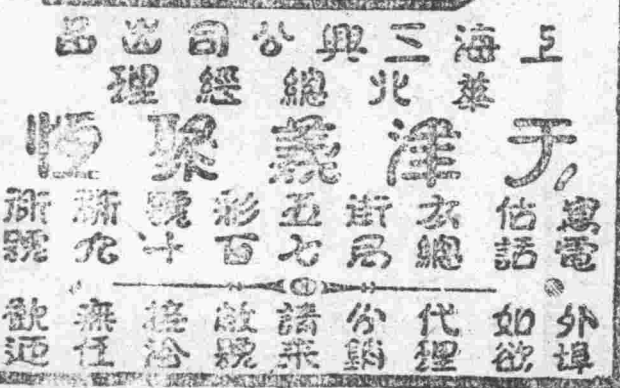 上海三興公司出品
華北總經理
天津義聚恒
寓估衣街五彩號衚衕
電話總局七百十九號
外埠如欲代理分銷請來敝號接洽無任歡迎